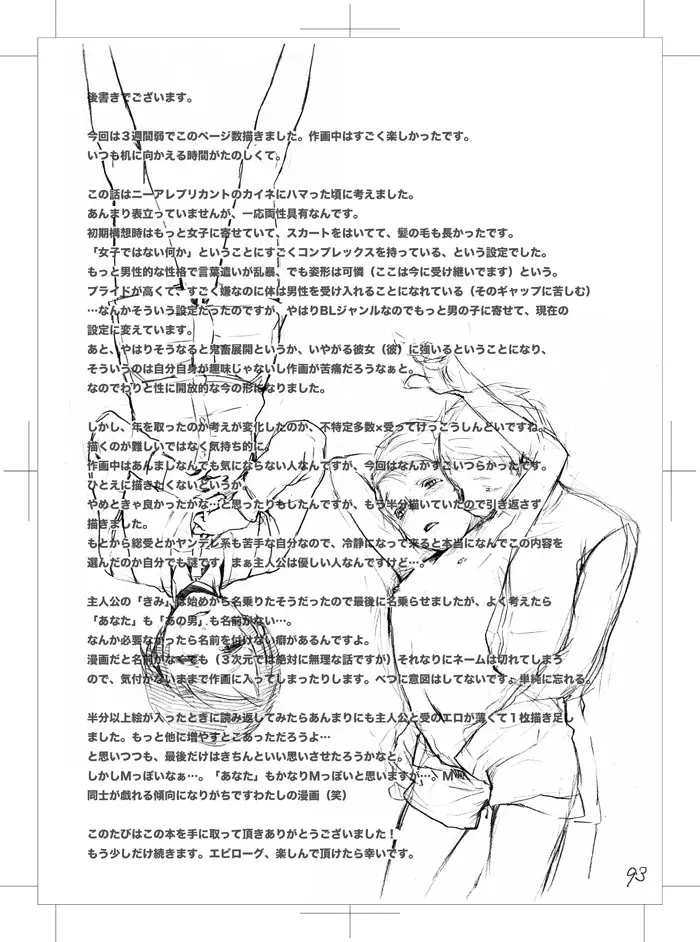 後書きでございます。
今回は３週間弱でこのページ数描きました。作画中はすごく楽しかったです。
いつも机に向かえる時間がたのしくて。
この話はニーアレプリカントのカイネにハマった頃に考えました。
あんまり表立っていませんが、一応両性具有なんです。
初期構想時はもっと女子に寄せていて、スカートをはいてて、髪の毛も長かったです。
「女子ではない何か」ということにすごくコンプレックスを持っている、という設定でした。
もっと男性的な性格で言葉遣いが乱暴、でも姿形は可憐（ここは今に受け継いでます）という。
プライドが高くて、すごく嫌なのに体は男性を受け入れることになれている（そのギャップに苦しむ）
…なんかそういう設定だったのですが、やはりBLジャンルなのでもっと男の子に寄せて、現在の
設定に変えています。
あと、やはりそうなると鬼畜展開というか、いやがる彼女（彼）に強いるということになり、
そういうのは自分自身が趣味じゃないし作画が苦痛だろうなぁと。
なのでわりと性に開放的な今の形になりました。
しかし、年を取ったのか考えが変化したのか、不特定多数×受ってけっこうしんどいですね。
描くのが難しいではなく気持ち的に。
作画中はあんまじなんでも気にならない人なんですが、今回はなんかすごいつらかったです。
ひとえに描きたくないというか。
やめときゃ良かったかな…と思ったりもしたんですが、もう半分描いていたので引き返さず
描きました。
もとから総受とかヤンデレ系も苦手な自分なので、冷静になって来ると本当になんでこの内容を
選んだのか自分でも謎です。まぁ主人公は優しい人なんですけど…。
主人公の「きみ」は始めから名乗りたそうだったので最後に名乗らせましたが、よく考えたら
「あなた」も「あの男」も名前がない…。
なんか必要なかったら名前を付けない癖があるんですよ。
漫画だと名前がなくても（３次元では絶対に無理な話ですが）それなりにネームは切れてしまう
ので、気付かないままで作画に入ってしまったりします。べつに意図はしてないです。単純に忘れる。
半分以上絵が入ったときに読み返してみたらあんまりにも主人公と受のエロが薄くて１枚描き足し
ました。もっと他に増やすとこあっただろうよ…
と思いつつも、最後だけはきちんといい思いさせたろうかなと。
しかしMっぽいなぁ…。「あなた」もかなりMっぽいと思いますが…。M
同士が戯れる傾向になりがちですわたしの漫画（笑）
このたびはこの本を手に取って頂きありがとうございました！
もう少しだけ続きます。エピローグ、楽しんで頂けたら幸いです。
93